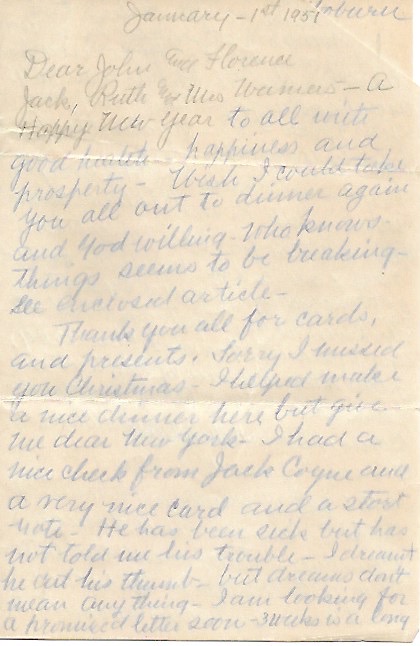 January - 1st 1951 Auburn
Dear John and Florence
Jack, Ruth and Mrs Warners - A
Happy New Year to all with
good health - happiness and
prosperty - Wish I could take
you all out to dinner again
and God willing - Who knows -
things seems to be breaking -
see enclosed article -
Thank you all for cards,
and presents. Sorry I missed
you Christmas - I helped make
a nice dinner here but give
me dear New York - I had a
nice check from Jack Coyne and
a very nice card and a short
note - He has been sick but has
not told me his trouble - I dreamt
he cut his thumb - but dreams don't
mean anything - I am looking for
a promised letter soon - 3 weeks is a long